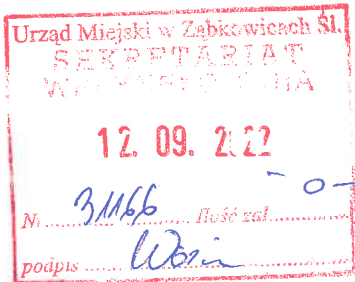 Urząd Miejski w Ząbkowicach Śl.
SEKRETARIAT
12. 09. 2022
- 0 -
N ...... 31166 ...... Ilość zał. ......
podpis ......